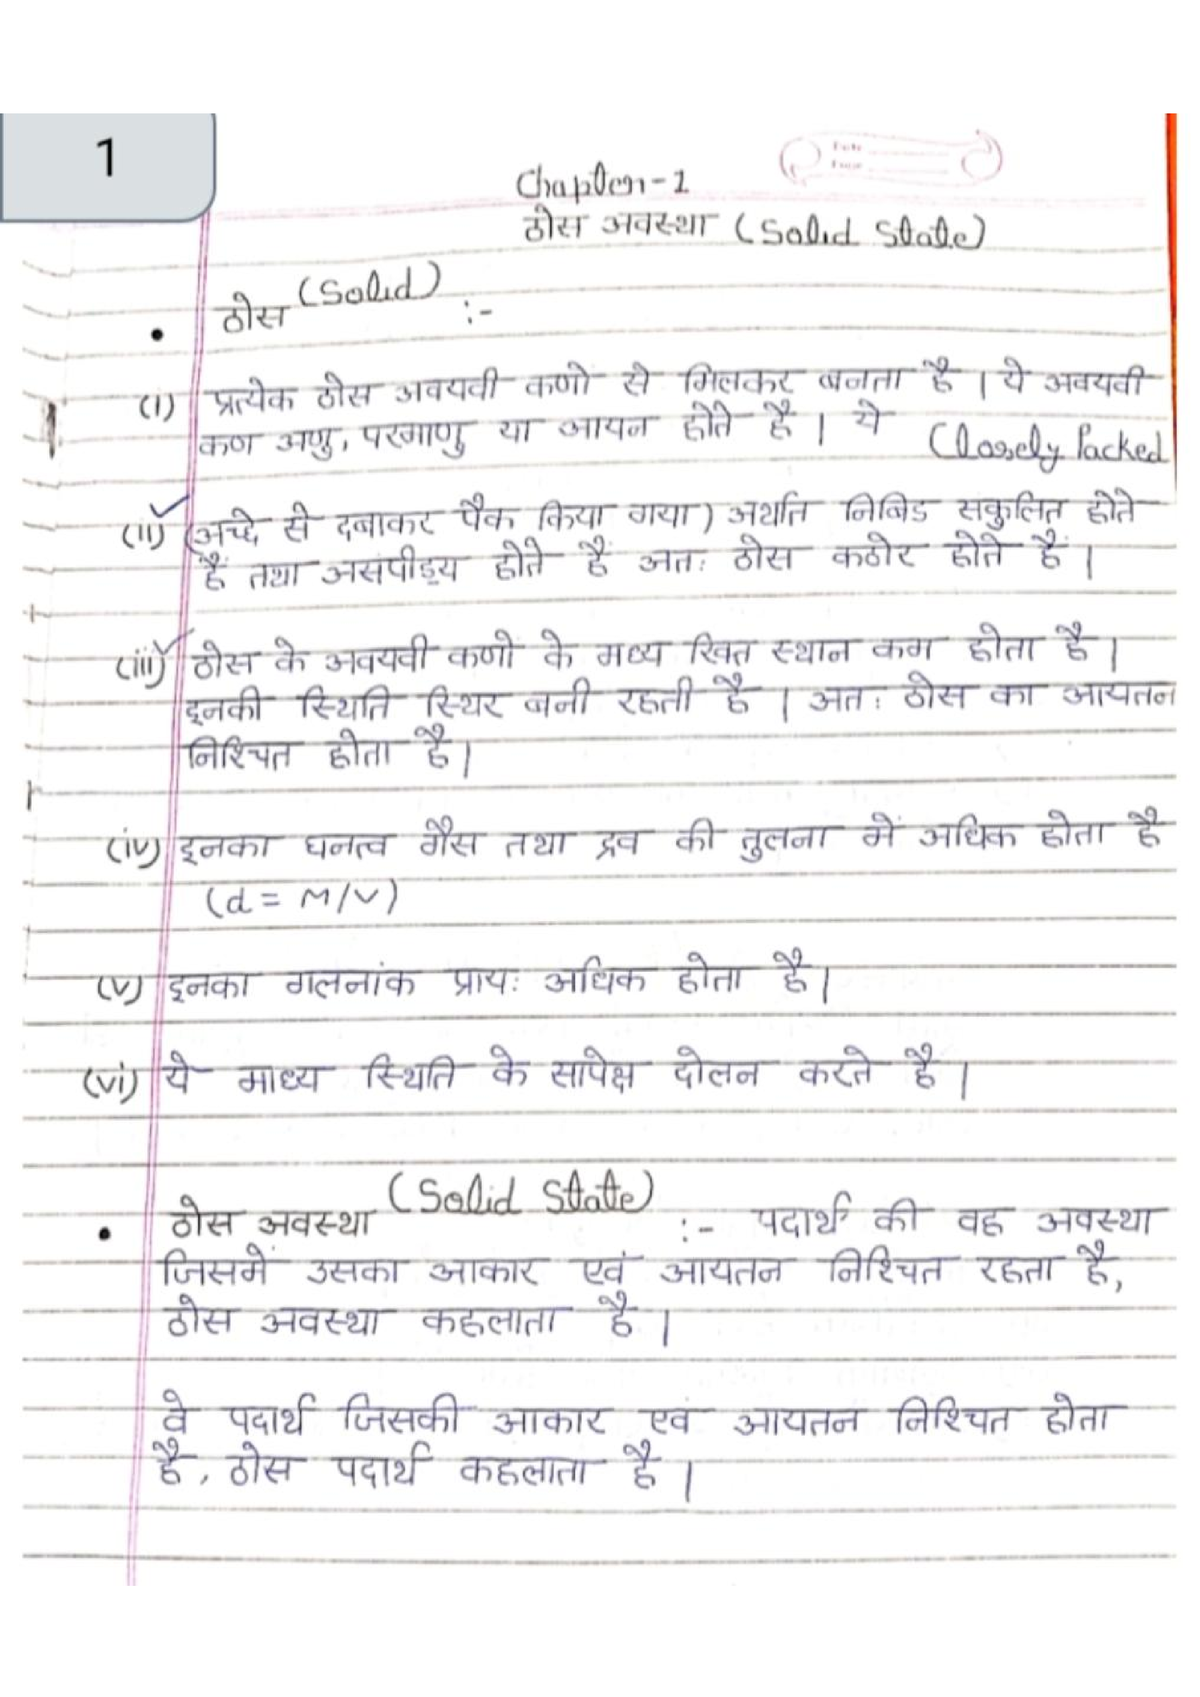 1
Chapter-1
ठोस अवस्था (Solid State)
• ठोस (Solid) :-
(i) प्रत्येक ठोस अवयवी कणों से मिलकर बनता है। ये अवयवी
कण अणु, परमाणु या आयन होते है। ये Closely Packed
(ii) (अच्दे से दबाकर पैक किया गया) अर्थात निबिड संकुलित होते
हैं तथा असंपीड्य होते हैं अतः ठोस कठोर होते हैं।
(iii) ठोस के अवयवी कणों के मध्य रिक्त स्थान कम होता है।
इनकी स्थिति स्थिर बनी रहती है। अतः ठोस का आयतन
निश्चित होता है।
(iv) इनका घनत्व गैस तथा द्रव की तुलना में अधिक होता है
(d = M/V)
(v) इनका गलनांक प्रायः अधिक होता है।
(vi) ये माध्य स्थिति के सापेक्ष दोलन करते है।
• ठोस अवस्था (Solid State) :- पदार्थ की वह अवस्था
जिसमें उसका आकार एवं आयतन निश्चित रहता है,
ठोस अवस्था कहलाता है।
वे पदार्थ जिसकी आकार एवं आयतन निश्चित होता
है, ठोस पदार्थ कहलाता है।